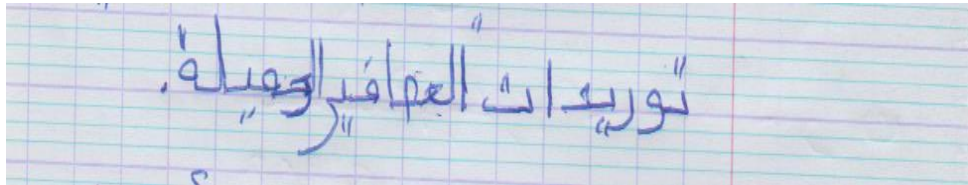 توريدات العصافير الجميلة.